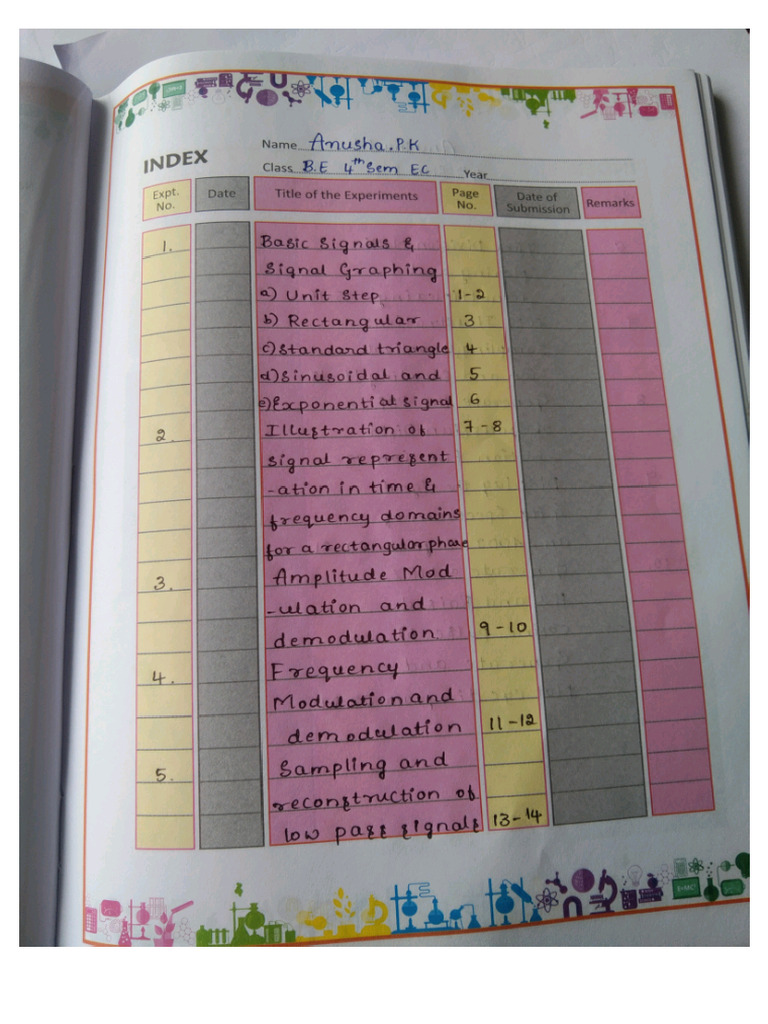 INDEX
Name Anusha.P.K
Class B.E 4th Sem EC Year
Expt. No. Date Title of the Experiments Page No. Date of Submission Remarks
1. Basic Signals &
Signal Graphing
a) Unit Step 1-2
b) Rectangular 3
c) Standard triangle 4
d) Sinusoidal and 5
e) Exponential signal 6
2. Illustration of 7-8
signal represent
-ation in time &
frequency domains
for a rectangular phase
3. Amplitude Mod
-ulation and
demodulation 9-10
4. Frequency
Modulation and
demodulation 11-12
5. Sampling and
reconstruction of
low pass signals 13-14